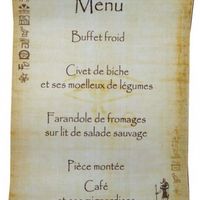 Menu
Buffet froid
Civet de biche
et ses moelleux de légumes
Farandole de fromages
sur lit de salade sauvage
Pièce montée
Café
et ses mignardises